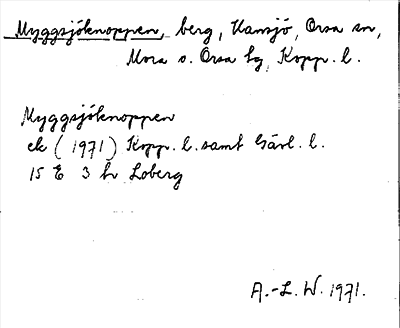 Myggsjöknoppen, berg, Hansjö, Orsa sn,
Mora o. Orsa tg, Kopp. l.
Myggsjöknoppen
ek (1971) Kopp. l. samt Gävl. l.
15 E 3 h Loberg
A.-L. W. 1971.